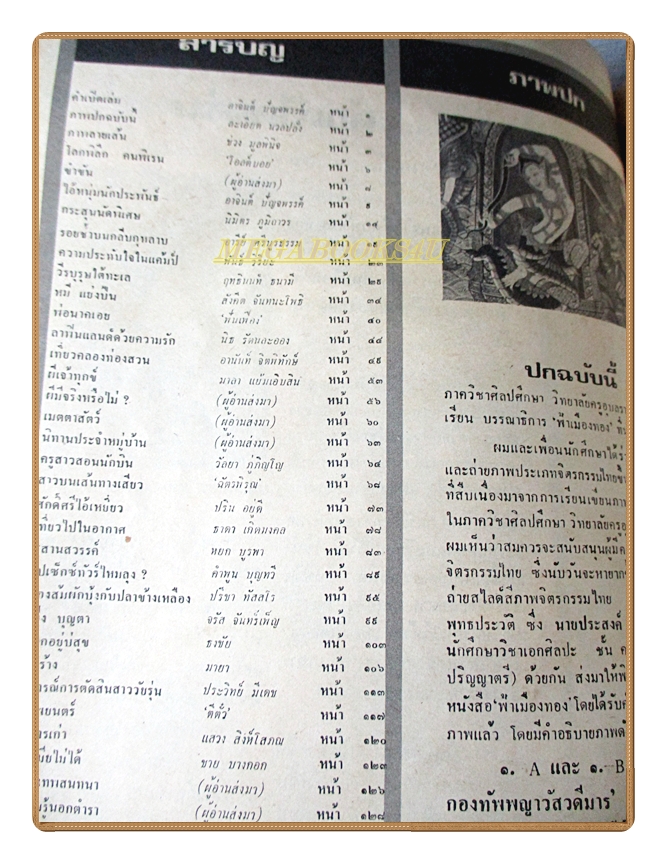 สารบัญ
คำเปิดเล่ม อาจินต์ ปัญจพรรค์ หน้า ๑
ภาพปกฉบับนี้ ละเอียด นวลปลั่ง หน้า ๒
ภาพลายเส้น ช่วง มูลพินิจ หน้า ๓
โลกพิลึก คนพิเรน 'โอลด์บอย' หน้า ๖
ขำขัน (ผู้อ่านส่งมา) หน้า ๘
ไอ้หนุ่มนักประพันธ์ อาจินต์ ปัญจพรรค์ หน้า ๙
กระสุนนัดพิเศษ นิมิตร ภูมิถาวร หน้า ๑๔
รอยช้ำบนกลีบกุหลาบ หน้า
ความประทับใจในแคมป์ หน้า ๒๓
วีรบุรุษใต้ทะเล ฤทธินนท์ ธนามี หน้า ๒๙
หมี แย่งปืน สังคีต จันทนะโพธิ หน้า ๓๔
พ่อนาคเอย 'ฟั่นเฟือง' หน้า ๔๐
ลาฟินแลนด์ด้วยความรัก นิธ รัตนละออง หน้า ๔๔
เที่ยวคลองท่องสวน อานันท์ จิตพิทักษ์ หน้า ๔๙
ผีเจ้าทุกข์ มาลา แย้มเอิบสิน หน้า ๕๓
ผีมีจริงหรือไม่ ? (ผู้อ่านส่งมา) หน้า ๕๖
เมตตาสัตว์ (ผู้อ่านส่งมา) หน้า ๖๐
นิทานประจำหมู่บ้าน (ผู้อ่านส่งมา) หน้า ๖๓
ครูสาวสอนนักบิน วัลยา ภู่ภิญโญ หน้า ๖๔
สาวบนเส้นทางเสี่ยว 'ฉัตรพิรุณ' หน้า ๖๘
ศักดิ์ศรีไอ้เหยี่ยว ปริน อยู่ดี หน้า ๗๓
เที่ยวไปในอากาศ ธาดา เกิดมงคล หน้า ๗๘
สานสวรรค์ หยก บูรพา หน้า ๘๓
ปเซ็กซ์ทัวร์ไหมลุง ? คำพูน บุญทวี หน้า ๘๙
างสัมผักบุ้งกับปลาข้างเหลือง ปรีชา ทัสสโร หน้า ๙๕
ง บุญตา จรัส จันทร์เพ็ญ หน้า ๙๙
กอยู่บ่สุข ธงชัย หน้า ๑๐๓
ร้าง มายา หน้า ๑๐๖
ารณ์การตัดสินสาววัยรุ่น ประวิทย์ มีเดช หน้า ๑๑๓
ยนตร์ 'ตี๋ตั๋ว' หน้า ๑๑๗
ารเก่า แสวง สิงห์โสภณ หน้า ๑๒๐
มียไม่ได้ ชาย บางกอก หน้า ๑๒๓
ทสนทนา (ผู้อ่านส่งมา) หน้า ๑๒๖
รู้นอกตำรา (ผู้อ่านส่งมา) หน้า ๑๒๘
MEGABOOKS4U
ภาพปก
ปกฉบับนี้
ภาควิชาศิลปศึกษา วิทยาลัยครูอุบลรา
เรียน บรรณาธิการ 'ฟ้าเมืองทอง' ที่
ผมและเพื่อนนักศึกษาได้ร่
และถ่ายภาพประเภทจิตรกรรมไทยขึ้
ที่สืบเนื่องมาจากการเรียนเขียนภา
ในภาควิชาศิลปศึกษา วิทยาลัยครูอุ
ผมเห็นว่าสมควรจะสนับสนุนผู้มีค
จิตรกรรมไทย ซึ่งนับวันจะหายาก
ถ่ายสไลด์สีภาพจิตรกรรมไทย
พุทธประวัติ ซึ่ง นายประสงค์
นักศึกษาวิชาเอกศิลปะ ชั้น ค
ปริญญาตรี) ด้วยกัน ส่งมาให้พิ
หนังสือ 'ฟ้าเมืองทอง' โดยได้รับ
ภาพแล้ว โดยมีคำอธิบายภาพดั
๑. A และ ๑. B
กองทัพพญาวัสวดีมาร'